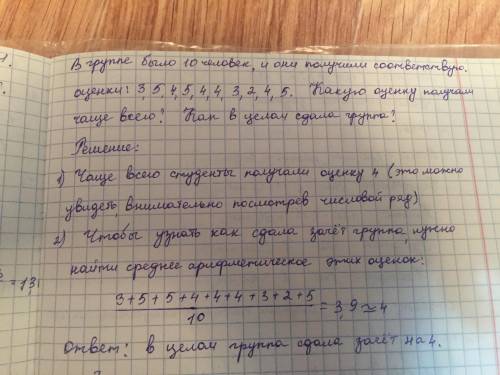 В группе было 10 человек, и они получили соответствую.
оценки: 3, 5, 4, 5, 4, 4, 3, 2, 4, 5. Какую оценку получали
чаще всего? Как в целом сдала группа?
Решение:
1) Чаще всего студенты получали оценку 4 (это можно
увидеть, внимательно посмотрев числовой ряд)
2) Чтобы узнать как сдала зачёт группа, нужно
найти среднее арифметическое этих оценок:
= 13,
3+5+5+4+4+4+3+2+5
10
= 3,9 ≃ 4
Ответ: в целом группа сдала зачёт на 4.